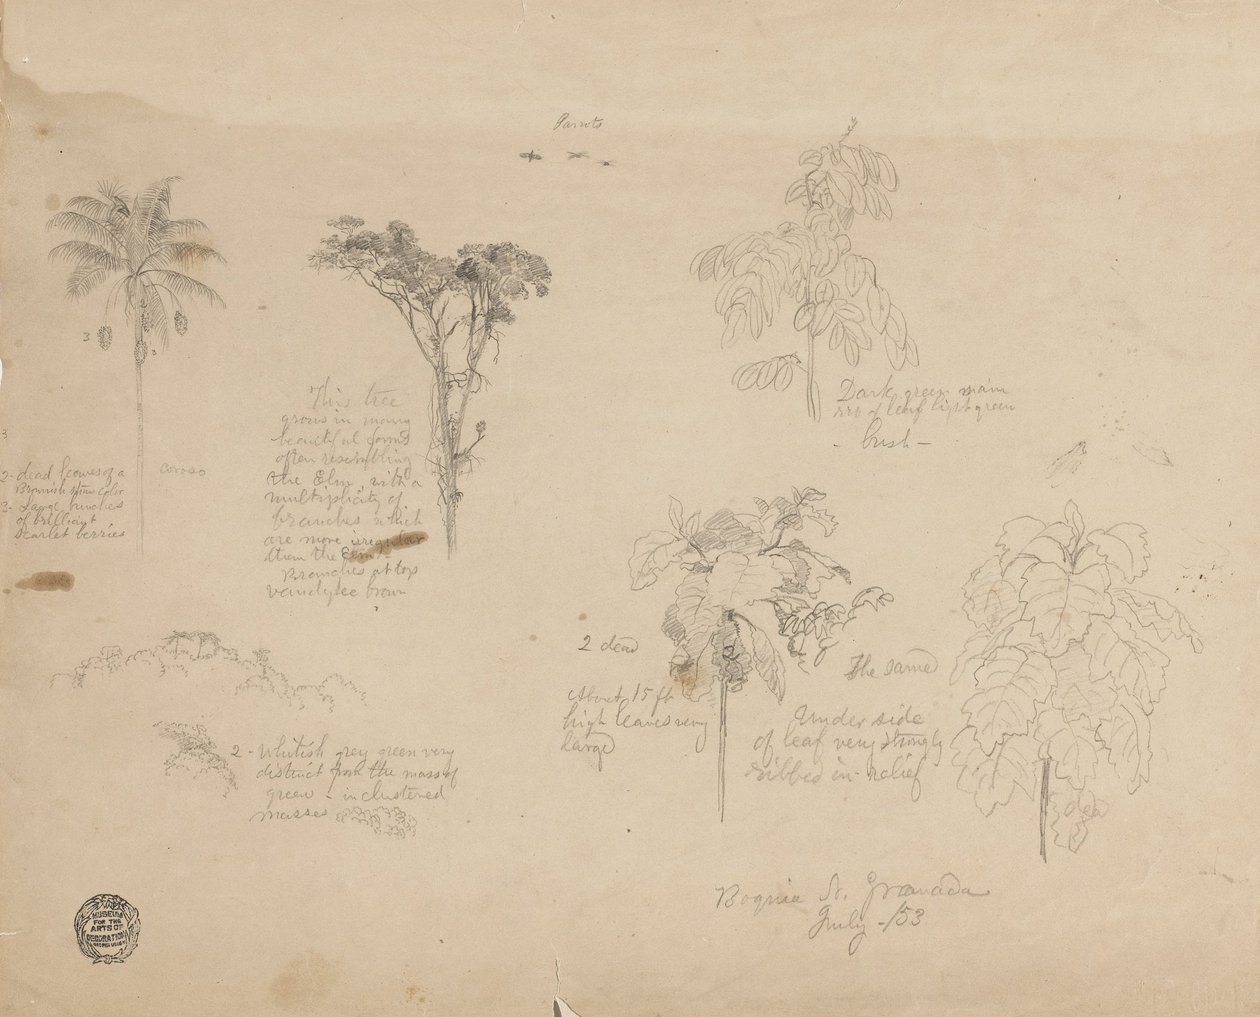 Parrots
3
3
2
3
2 - dead leaves of a
Brownish stone color
3 - Large bunches
of brilliant
scarlet berries
corozo
This tree
grows in many
beautiful forms
often resembling
the Elm, with a
multiplicity of
branches which
are more irregular
than the Elm's
Branches at top
vandyke brown
Dark green main
rib of leaf light green
bush -
2 dead
2
About 15 ft
high leaves very
large
The same
Under side
of leaf very strongly
ribbed in relief
dead
2 - Whitish grey green very
distinct from the mass of
green - in clustered
masses
Boqnia N. Granada
July - /53
MUSEUM
FOR THE
ARTS OF
DECORATION
COOPER UNION